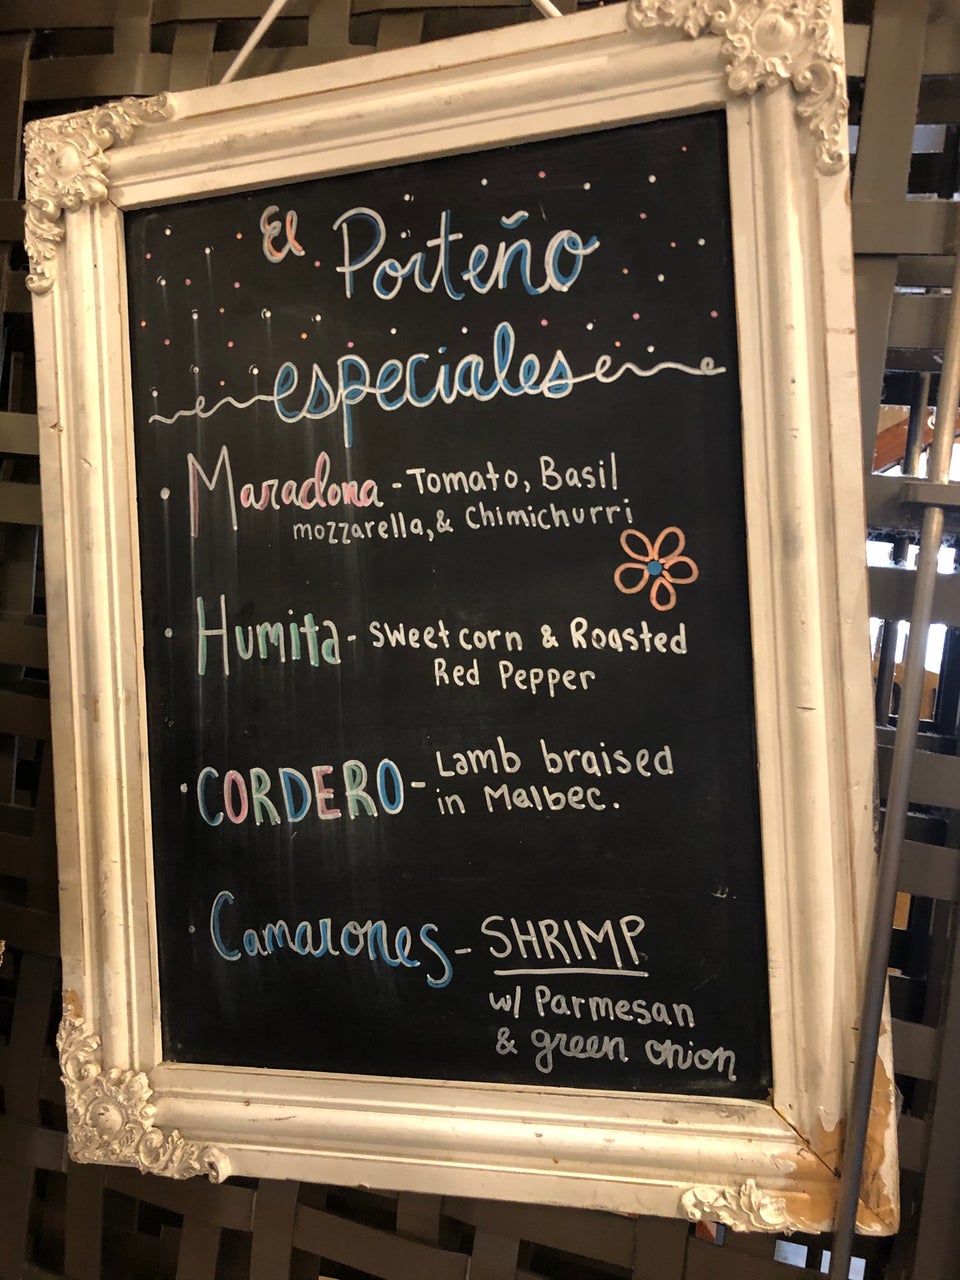 El Porteño
especiales
• Maradona - Tomato, Basil
mozzarella, & Chimichurri
• Humita - sweet corn & Roasted
Red Pepper
• CORDERO - Lamb braised
in Malbec.
• Camarones - SHRIMP
w/ Parmesan
& green onion